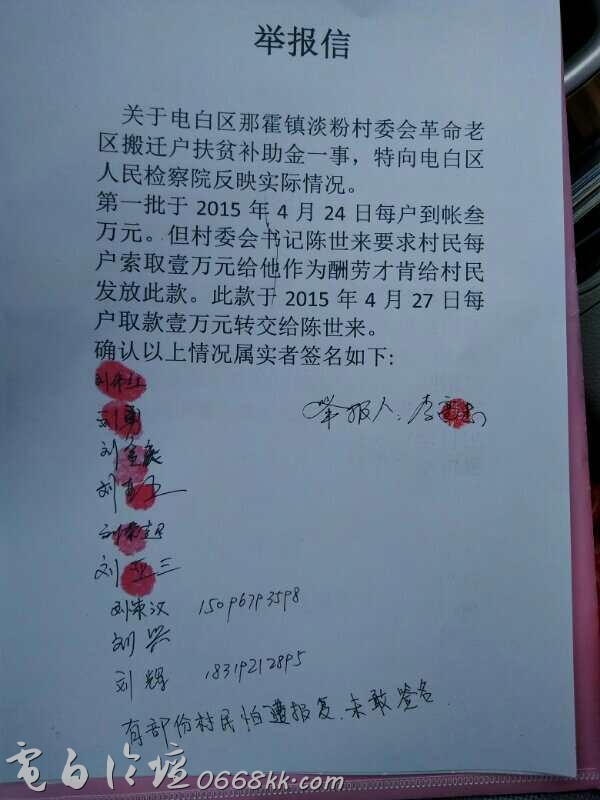 举报信
关于电白区那霍镇淡粉村委会革命老
区搬迁户扶贫补助金一事，特向电白区
人民检察院反映实际情况。
第一批于 2015 年 4 月 24 日每户到帐叁
万元。但村委会书记陈世来要求村民每
户索取壹万元给他作为酬劳才肯给村民
发放此款。此款于 2015 年 4 月 27 日每
户取款壹万元转交给陈世来。
确认以上情况属实者签名如下:
举报人: 李
刘
刘勇
刘金
刘
刘
刘亚三
刘东汉 15096793598
刘兴
刘辉 18319212895
有部份村民怕遭报复.未敢签名.
電白论坛0668kk.com